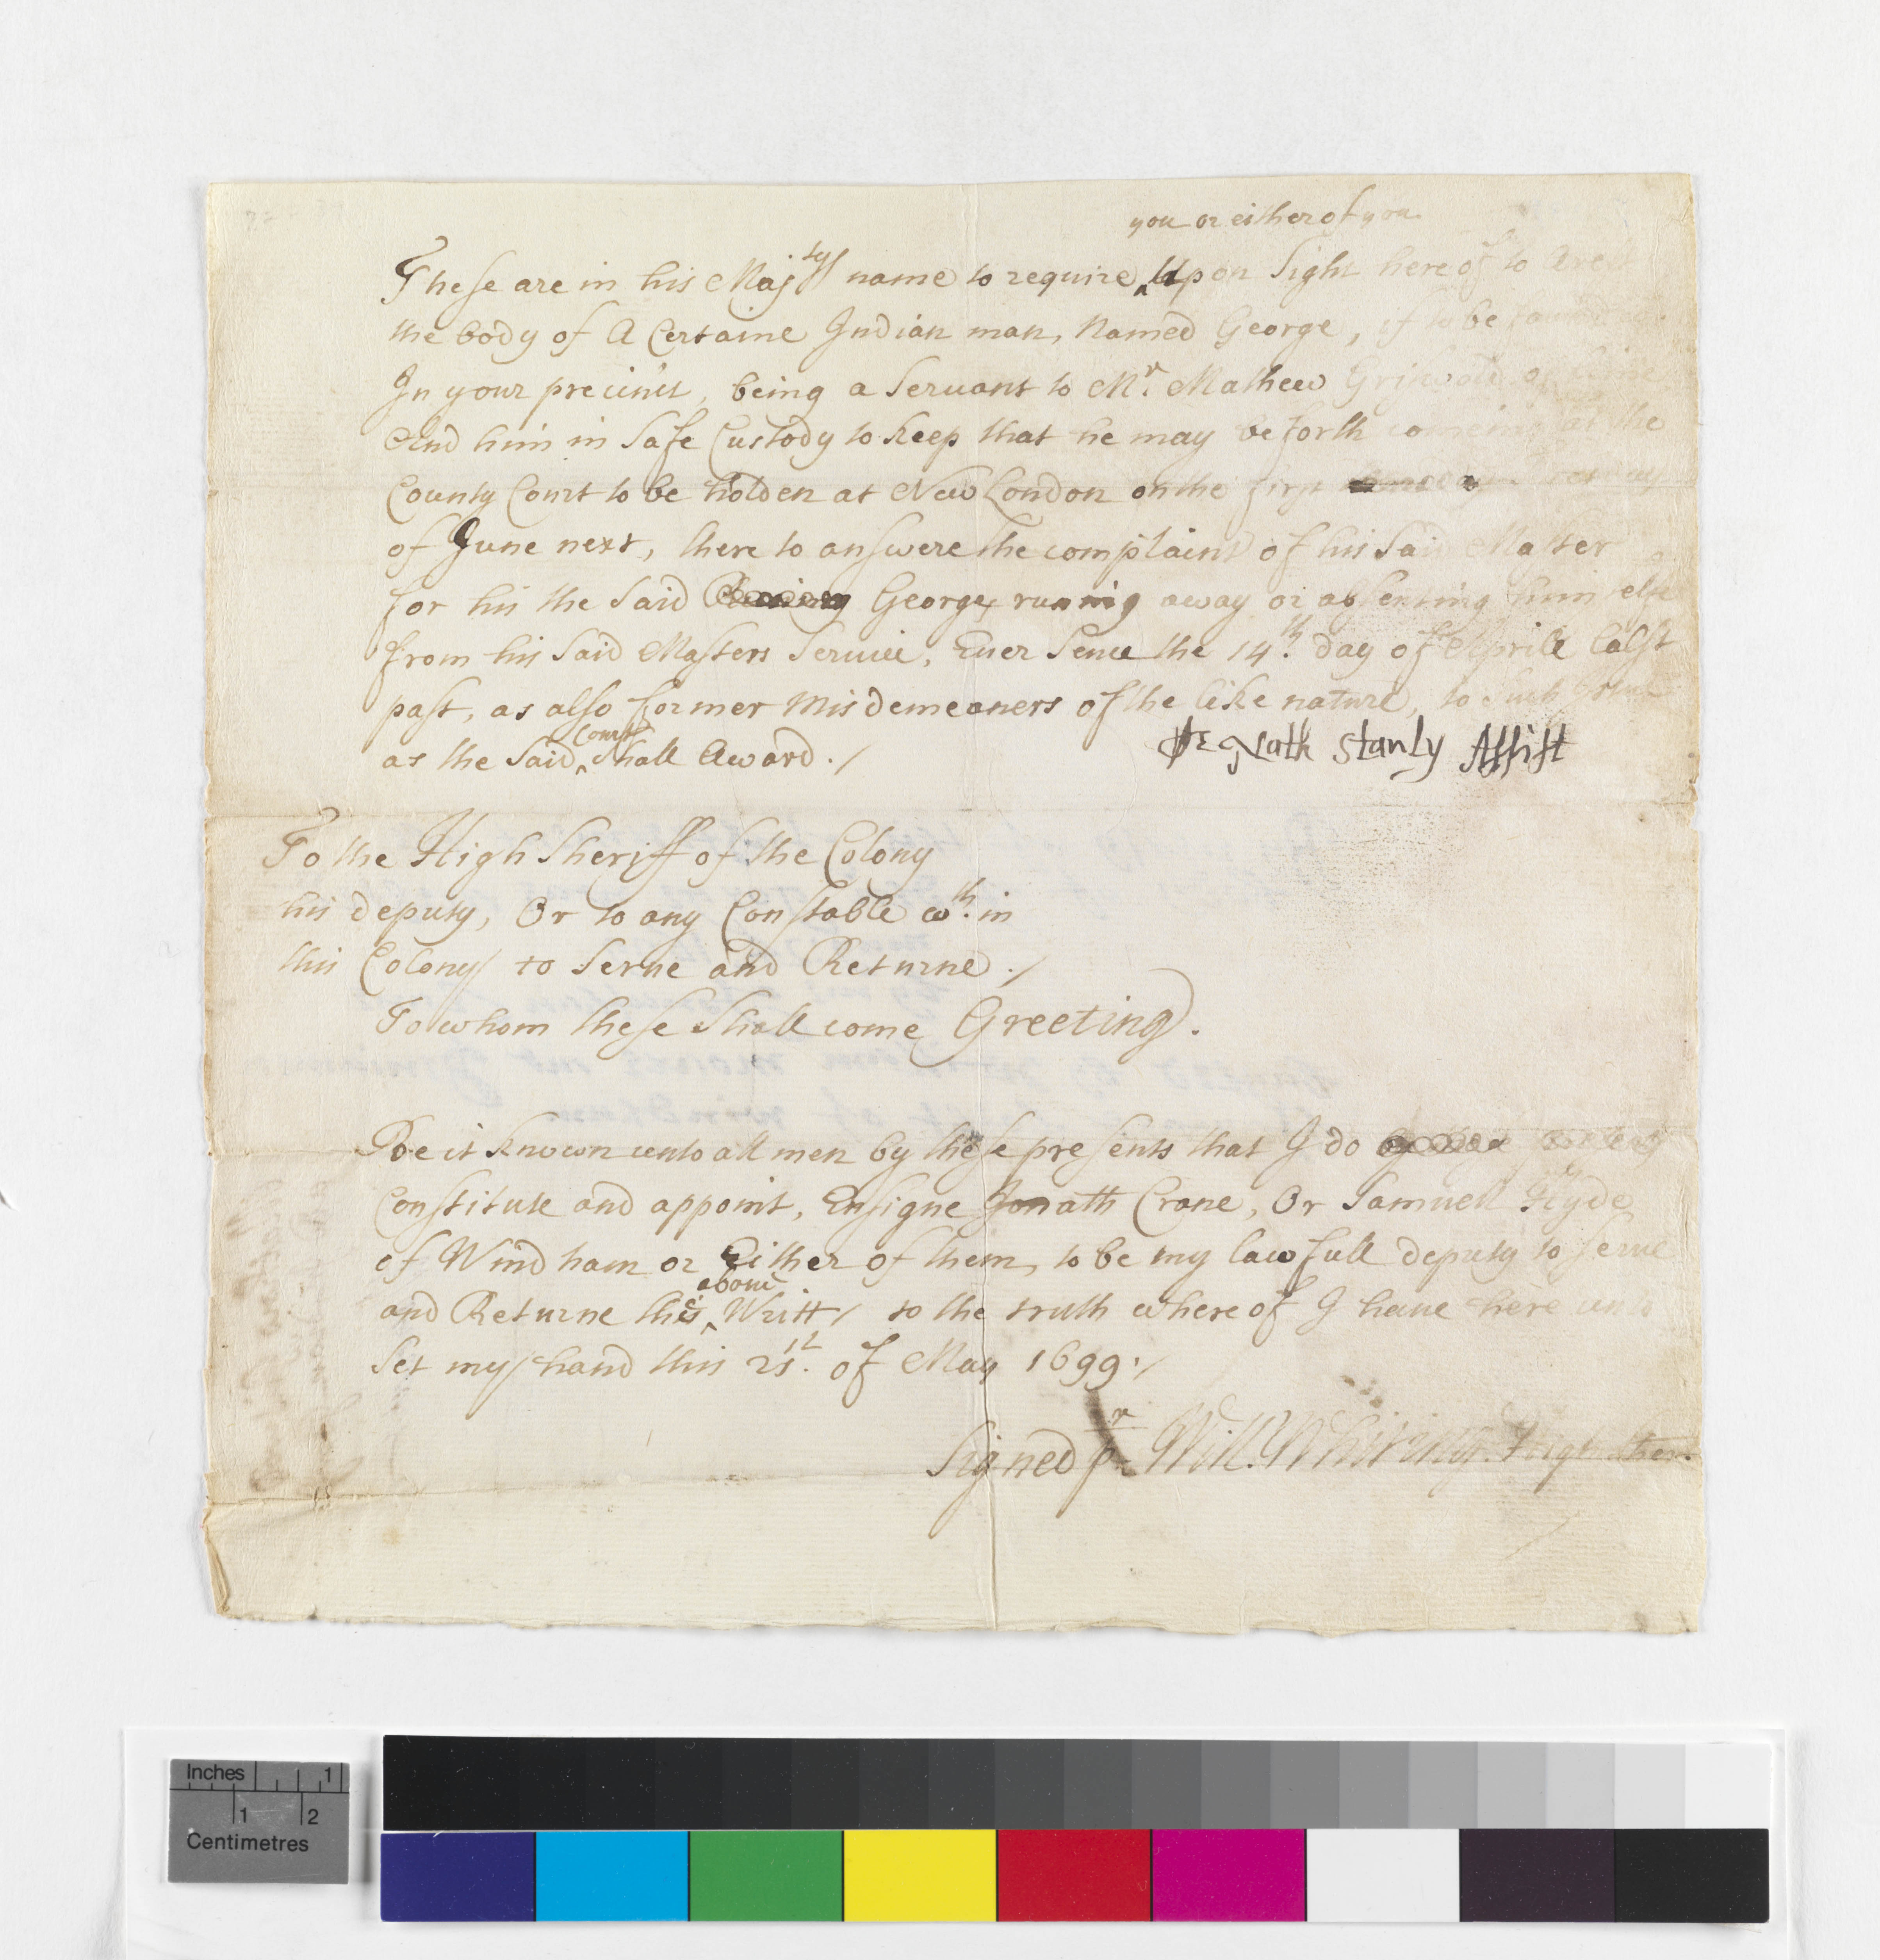 you or either of you
These are in his Maj^tys name to require ^ Upon Sight here of to Arest
the body of A Certaine Indian man, Named George, if to be found
In your precinct, being a Servant to M^r. Mathew Griswold of
And him in Safe Custody to Keep that he may be forth comeing at the
County Court to be holden at New London on the first
of June next, there to answere the complaint of his Said Master
for his the Said George, runing away or absenting himselfe
from his Said Masters Service, Ever Sence the 14^th. day of Aprile last
past, as also former Misdemeaners of the like nature, to Such
Court
as the Said ^ Shall Award ./
Nath Stanly Assist
To the High Sheriff of the Colony
his deputy, Or to any Constable w^th. in
this Colony to Serve and Returne ./
To whom these Shall come Greeting.
Be it known unto all men by these presents that I do
Constitute and appoint, Ensigne Jonath Crane, Or Samuell Hyde
of Windham or Either of them, to be my lawfull deputy to Serve
above
and Returne the ^ Writt / to the truth where of I have here unto
Set my hand this 21^st. of May 1699 ./
Signed p^r Will. Whiting. High Sher.
Inches 1
1 2
Centimetres